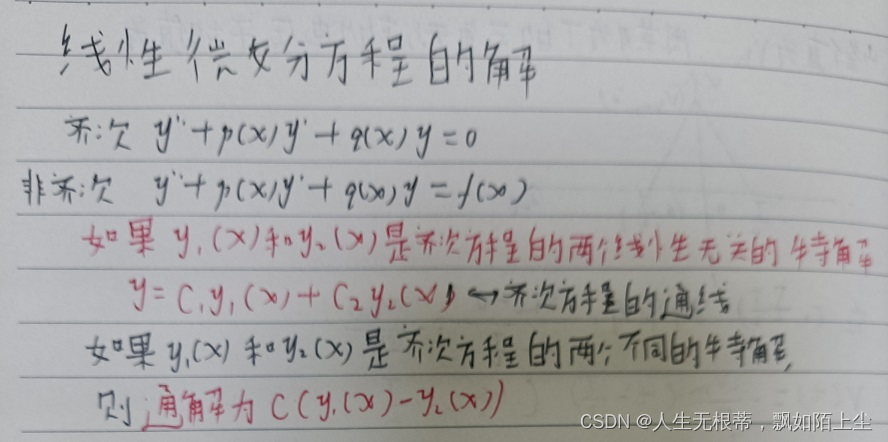 线性微分方程的解
齐次 y''+p(x)y'+q(x)y=0
非齐次 y''+p(x)y'+q(x)y=f(x)
如果 y₁(x)和y₂(x)是齐次方程的两个线性无关的特解
y=C₁y₁(x)+C₂y₂(x) ↔齐次方程的通线
如果 y₁(x)和y₂(x)是齐次方程的两个不同的特解,
则通解为C(y₁(x)-y₂(x))
CSDN @人生无根蒂，飘如陌上尘